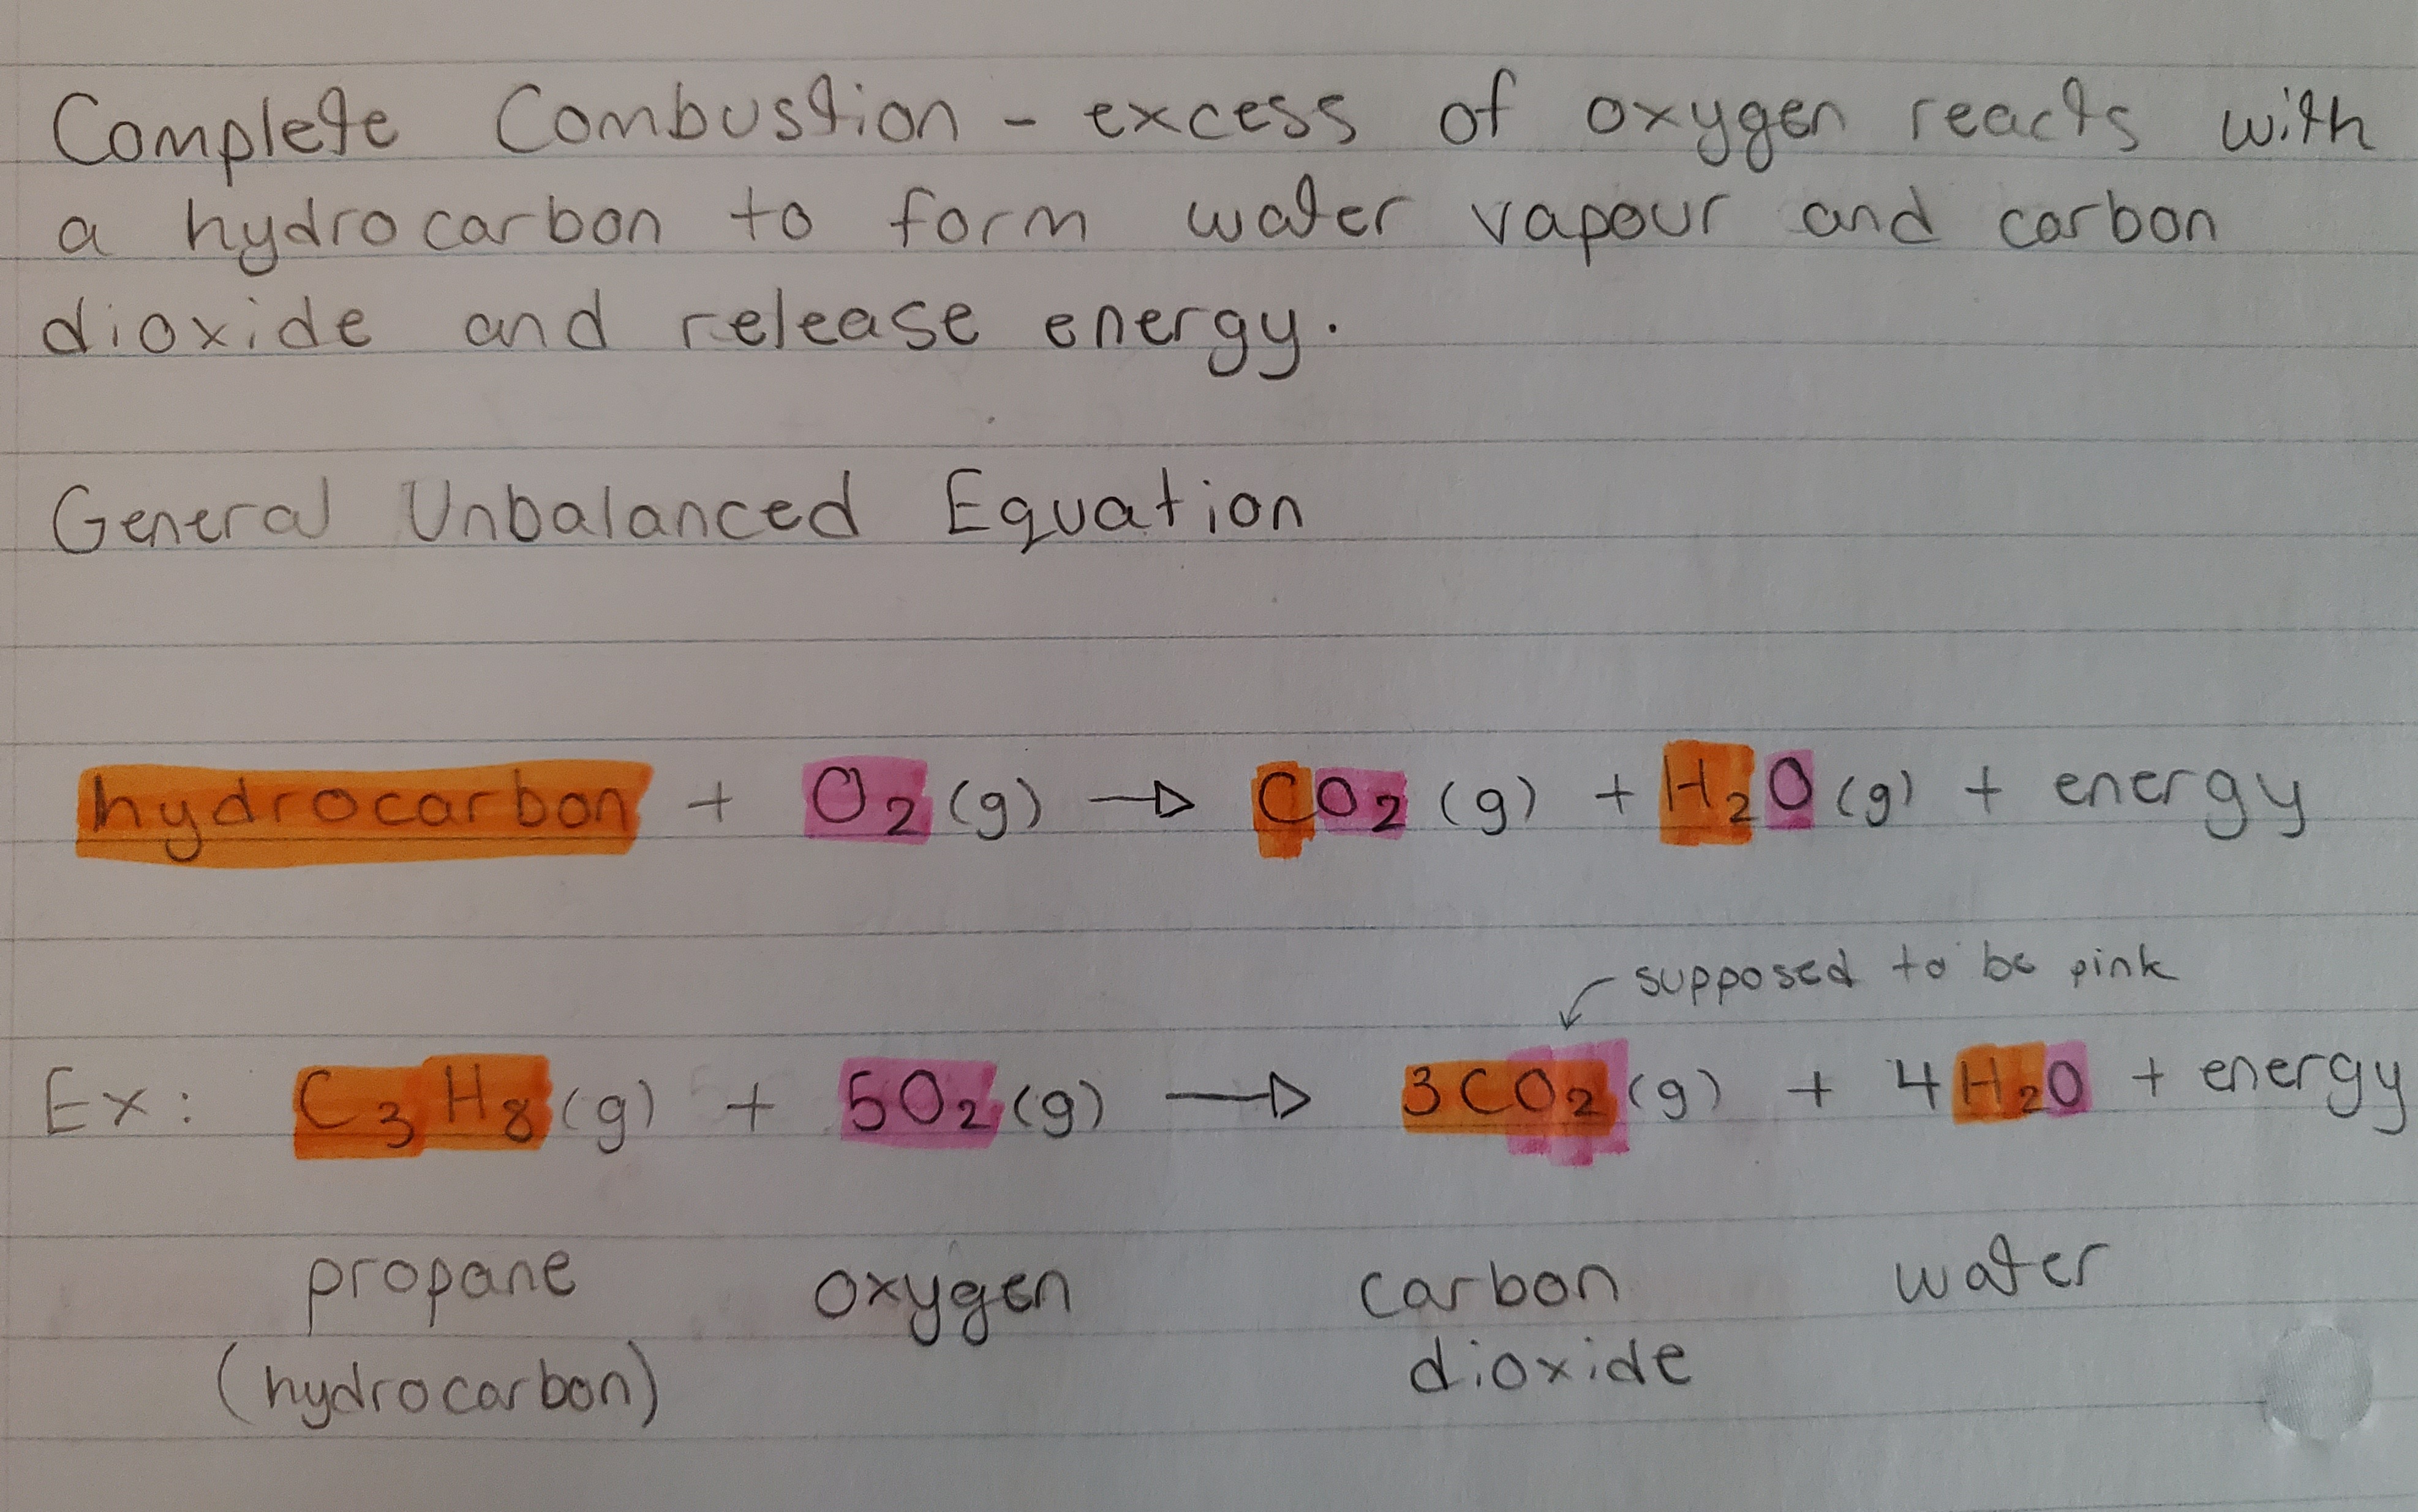 Complete Combustion - excess of oxygen reacts with
a hydrocarbon to form water vapour and carbon
dioxide and release energy.
General Unbalanced Equation
hydrocarbon + O₂ (g) → CO₂ (g) + H₂O (g) + energy
supposed to be pink
Ex: C₃H₈ (g) + 5O₂ (g) → 3CO₂ (g) + 4H₂O + energy
propane oxygen carbon water
(hydrocarbon) dioxide